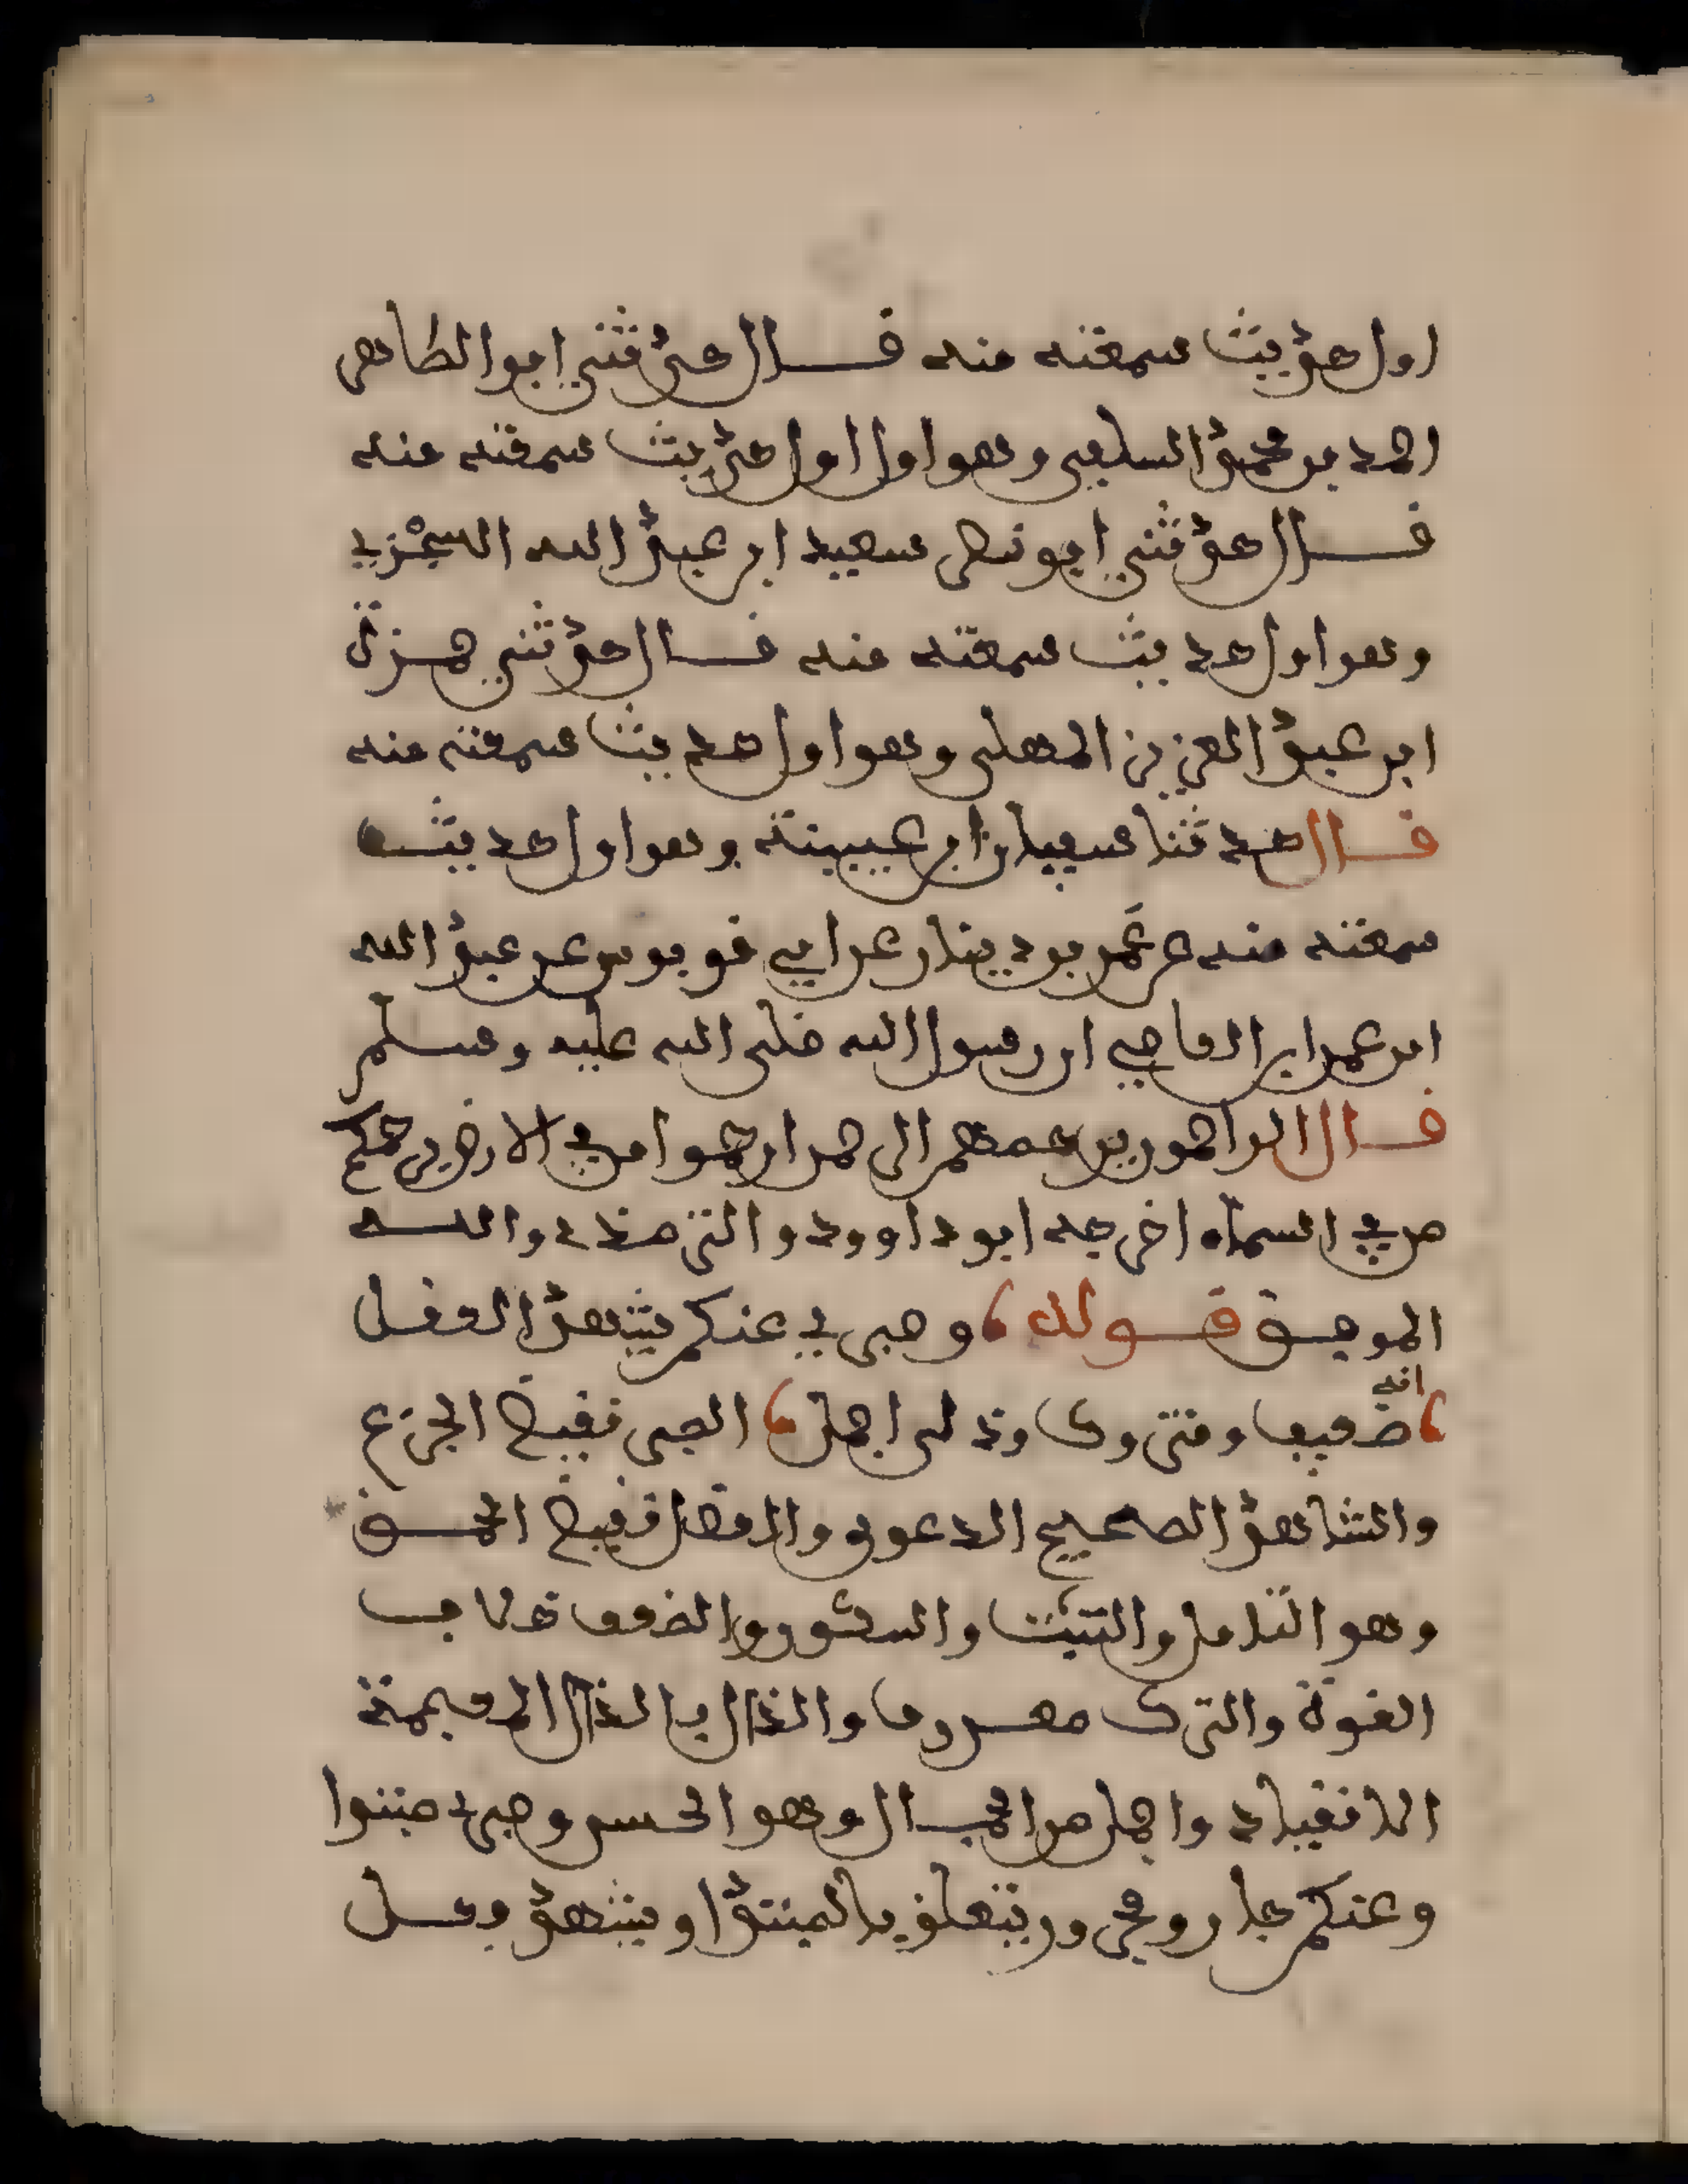 اول حديث سمعته منه قال حدثني ابو الطاهر
احمد بن محمد السلفي وهو اول اول حديث سمعته منه
قال حدثني ابو نصر سعيد ابن عبد الله السجزي
وهو اول حديث سمعته منه قال حدثني حمزة
ابن عبد العزيز المهلبي وهو اول حديث سمعته منه
قال حدثنا سفيان ابن عيينة وهو اول حديث
سمعته منه عن عَمر بن دينار عن ابي قوبوس عن عبد الله
ابن عمر ابن العاصي ان رسول الله صلى الله عليه وسلم
قال الراحمون يرحمهم الرحمن ارحموا من في الارض يرحمكم
من في السماء اخرجه ابو داوود والترمذي والله
الموفق قوله وصبري عنكم يشهد العقل
انه ضعيف ومتروك وذلي اجمل الصبر نقيض الجزع
والشاهد الصحيح الدعوى والعقل نقيض الحمق
وهو التامل والتثبت والضعف خلاف
القوة والترك معروف والذل بالذال المعجمة
الانقياد واجمل من الجمال وهو الحسن وصبري مبتدا
وعنكم جار ومجرور يتعلق بالمبتدا ويشهد فعل